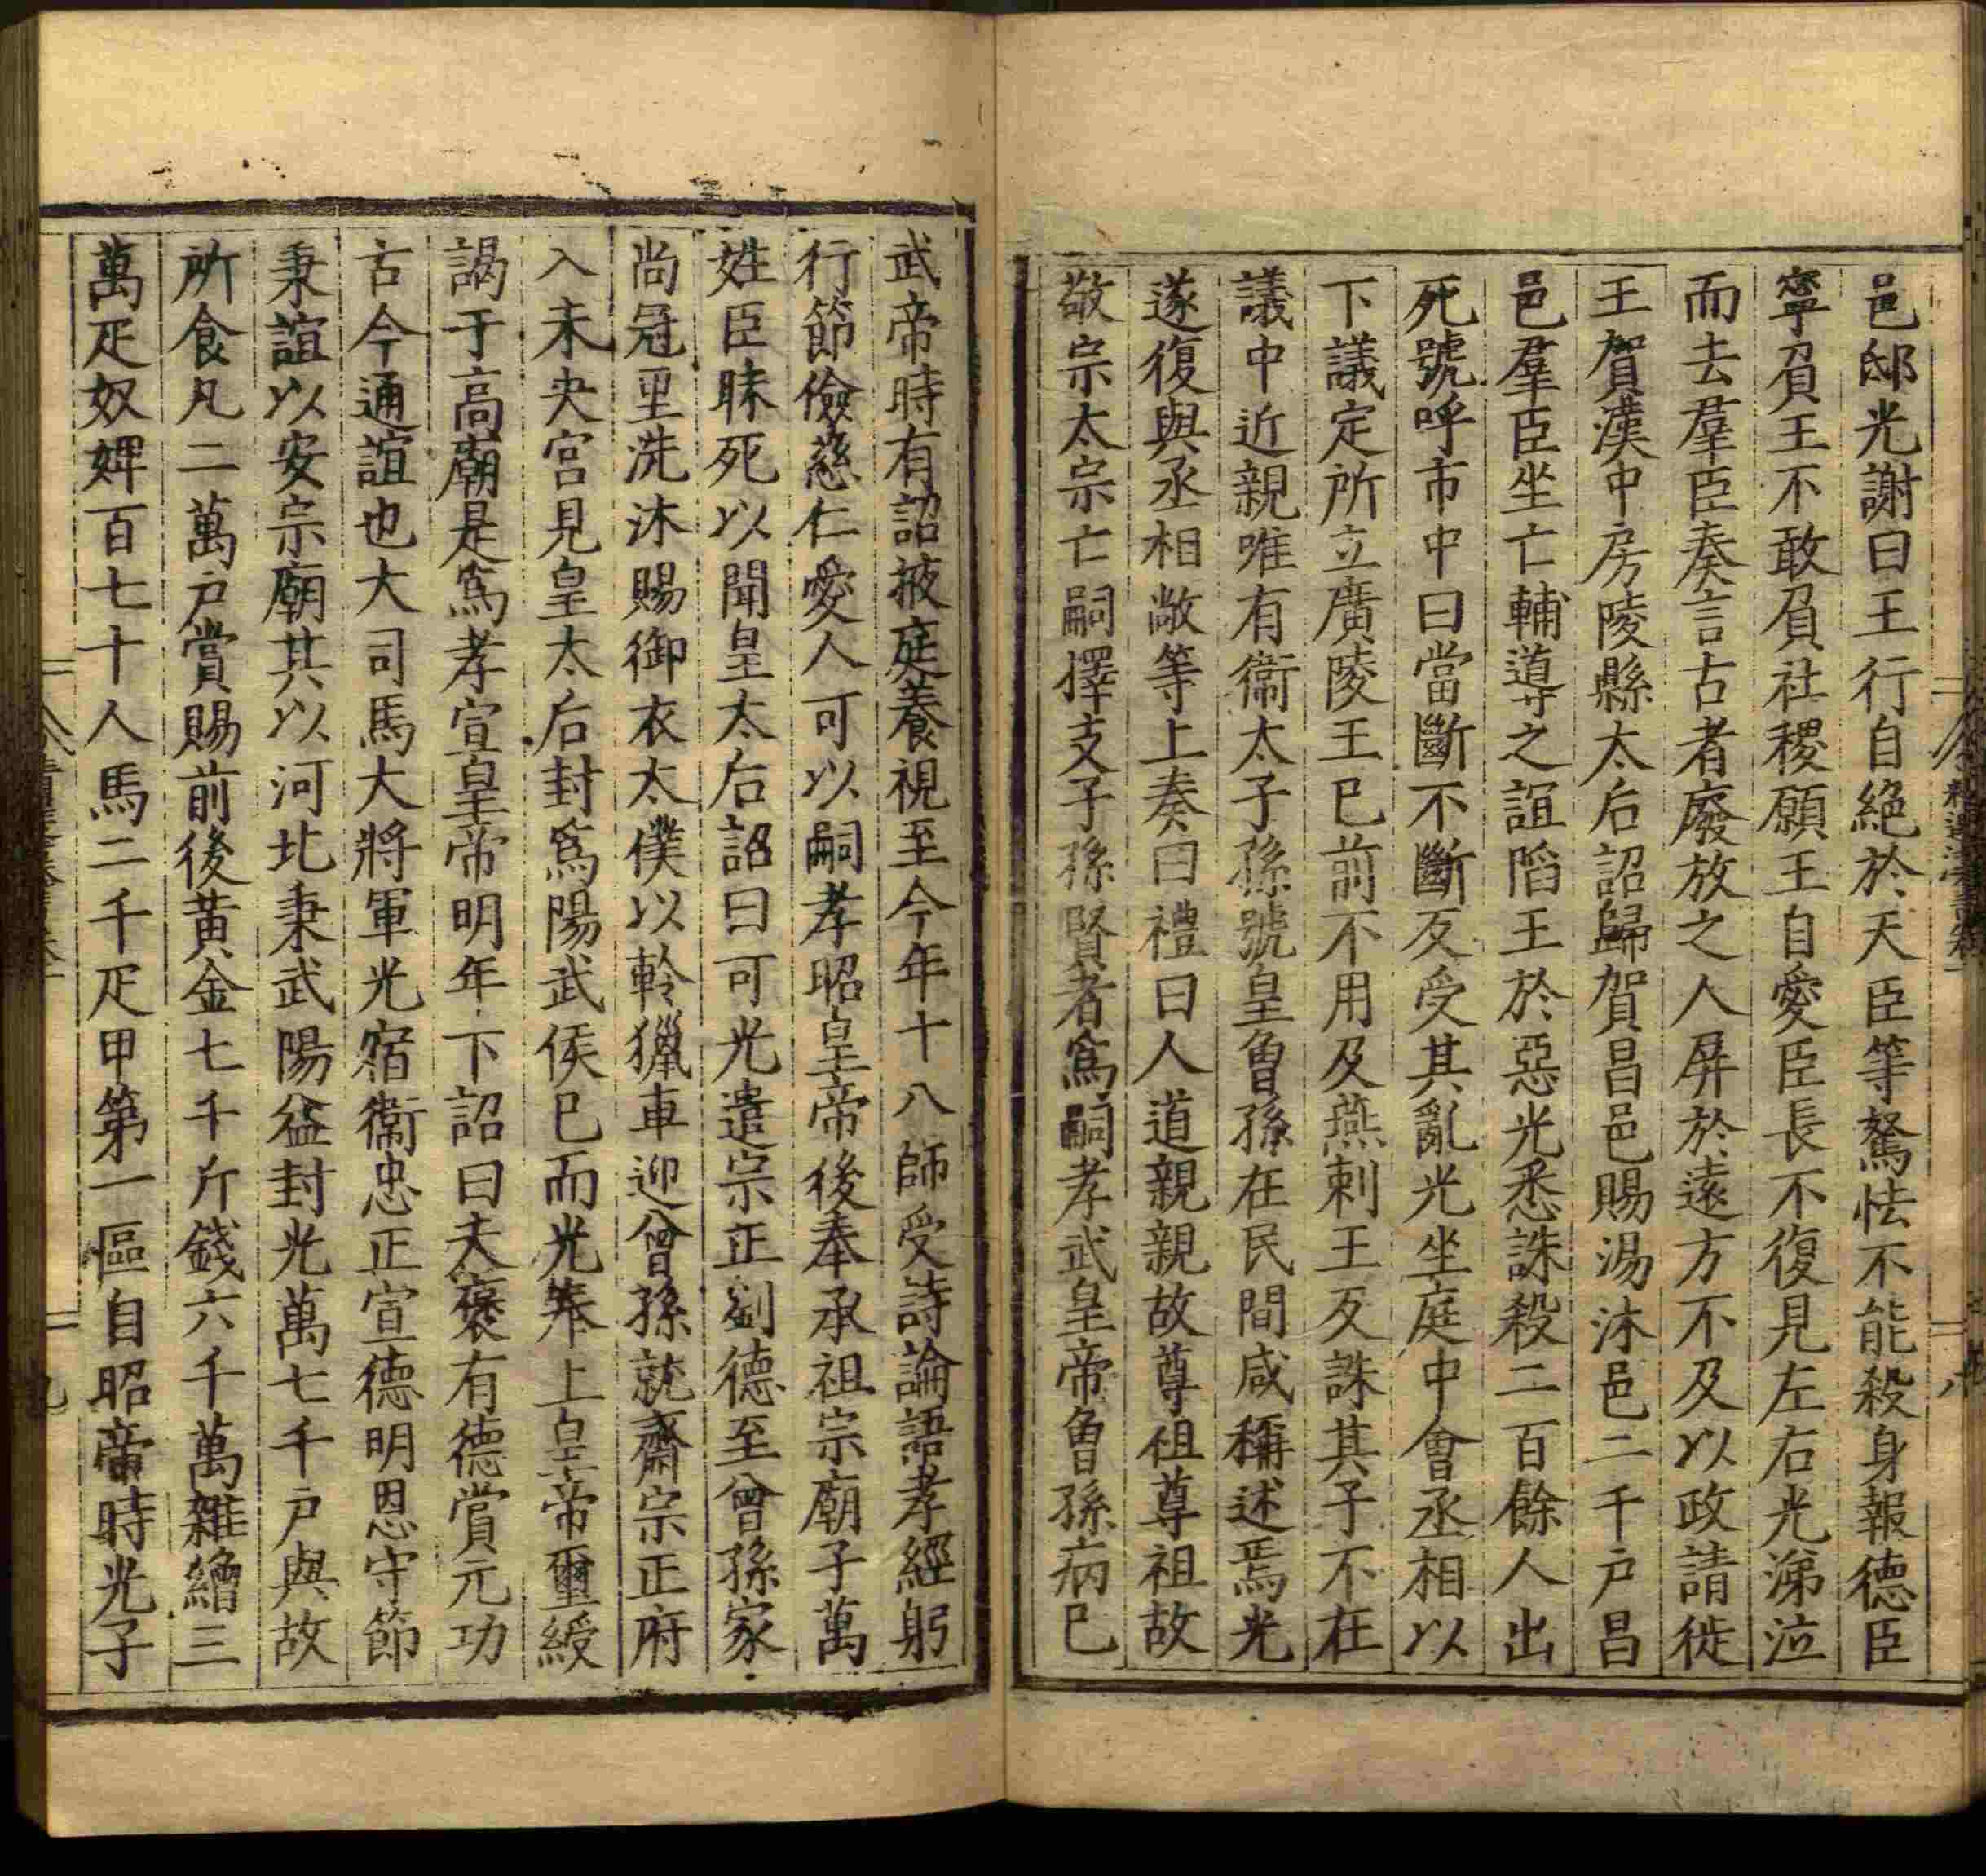 邑邸光謝曰王行自絕於天臣等駑怯不能殺身報德臣
寧負王不敢負社稷願王自愛臣長不復見左右光涕泣
而去羣臣奏言古者廢放之人屏於遠方不及以政請徙
王賀漢中房陵縣太后詔歸賀昌邑賜湯沐邑二千戶昌
邑羣臣坐亡輔導之誼陷王於惡光悉誅殺二百餘人出
死號呼市中曰當斷不斷反受其亂光坐庭中會丞相以
下議定所立廣陵王已前不用及燕剌王反誅其子不在
議中近親唯有衞太子孫號皇曾孫在民間咸稱述焉光
遂復與丞相敞等上奏曰禮曰人道親親故尊祖尊祖故
敬宗太宗亡嗣擇支子孫賢者爲嗣孝武皇帝曾孫病已
武帝時有詔掖庭養視至今年十八師受詩論語孝經躬
行節儉慈仁愛人可以嗣孝昭皇帝後奉承祖宗廟子萬
姓臣昧死以聞皇太后詔曰可光遣宗正劉德至曾孫家
尚冠里洗沐賜御衣太僕以軨獵車迎曾孫就齋宗正府
入未央宮見皇太后封爲陽武侯已而光奉上皇帝璽綬
謁于高廟是爲孝宣皇帝明年下詔曰夫襃有德賞元功
古今通誼也大司馬大將軍光宿衞忠正宣德明恩守節
秉誼以安宗廟其以河北東武陽益封光萬七千戶與故
所食凡二萬戶賞賜前後黃金七千斤錢六千萬雜繒三
萬疋奴婢百七十人馬二千疋甲第一區自昭帝時光子